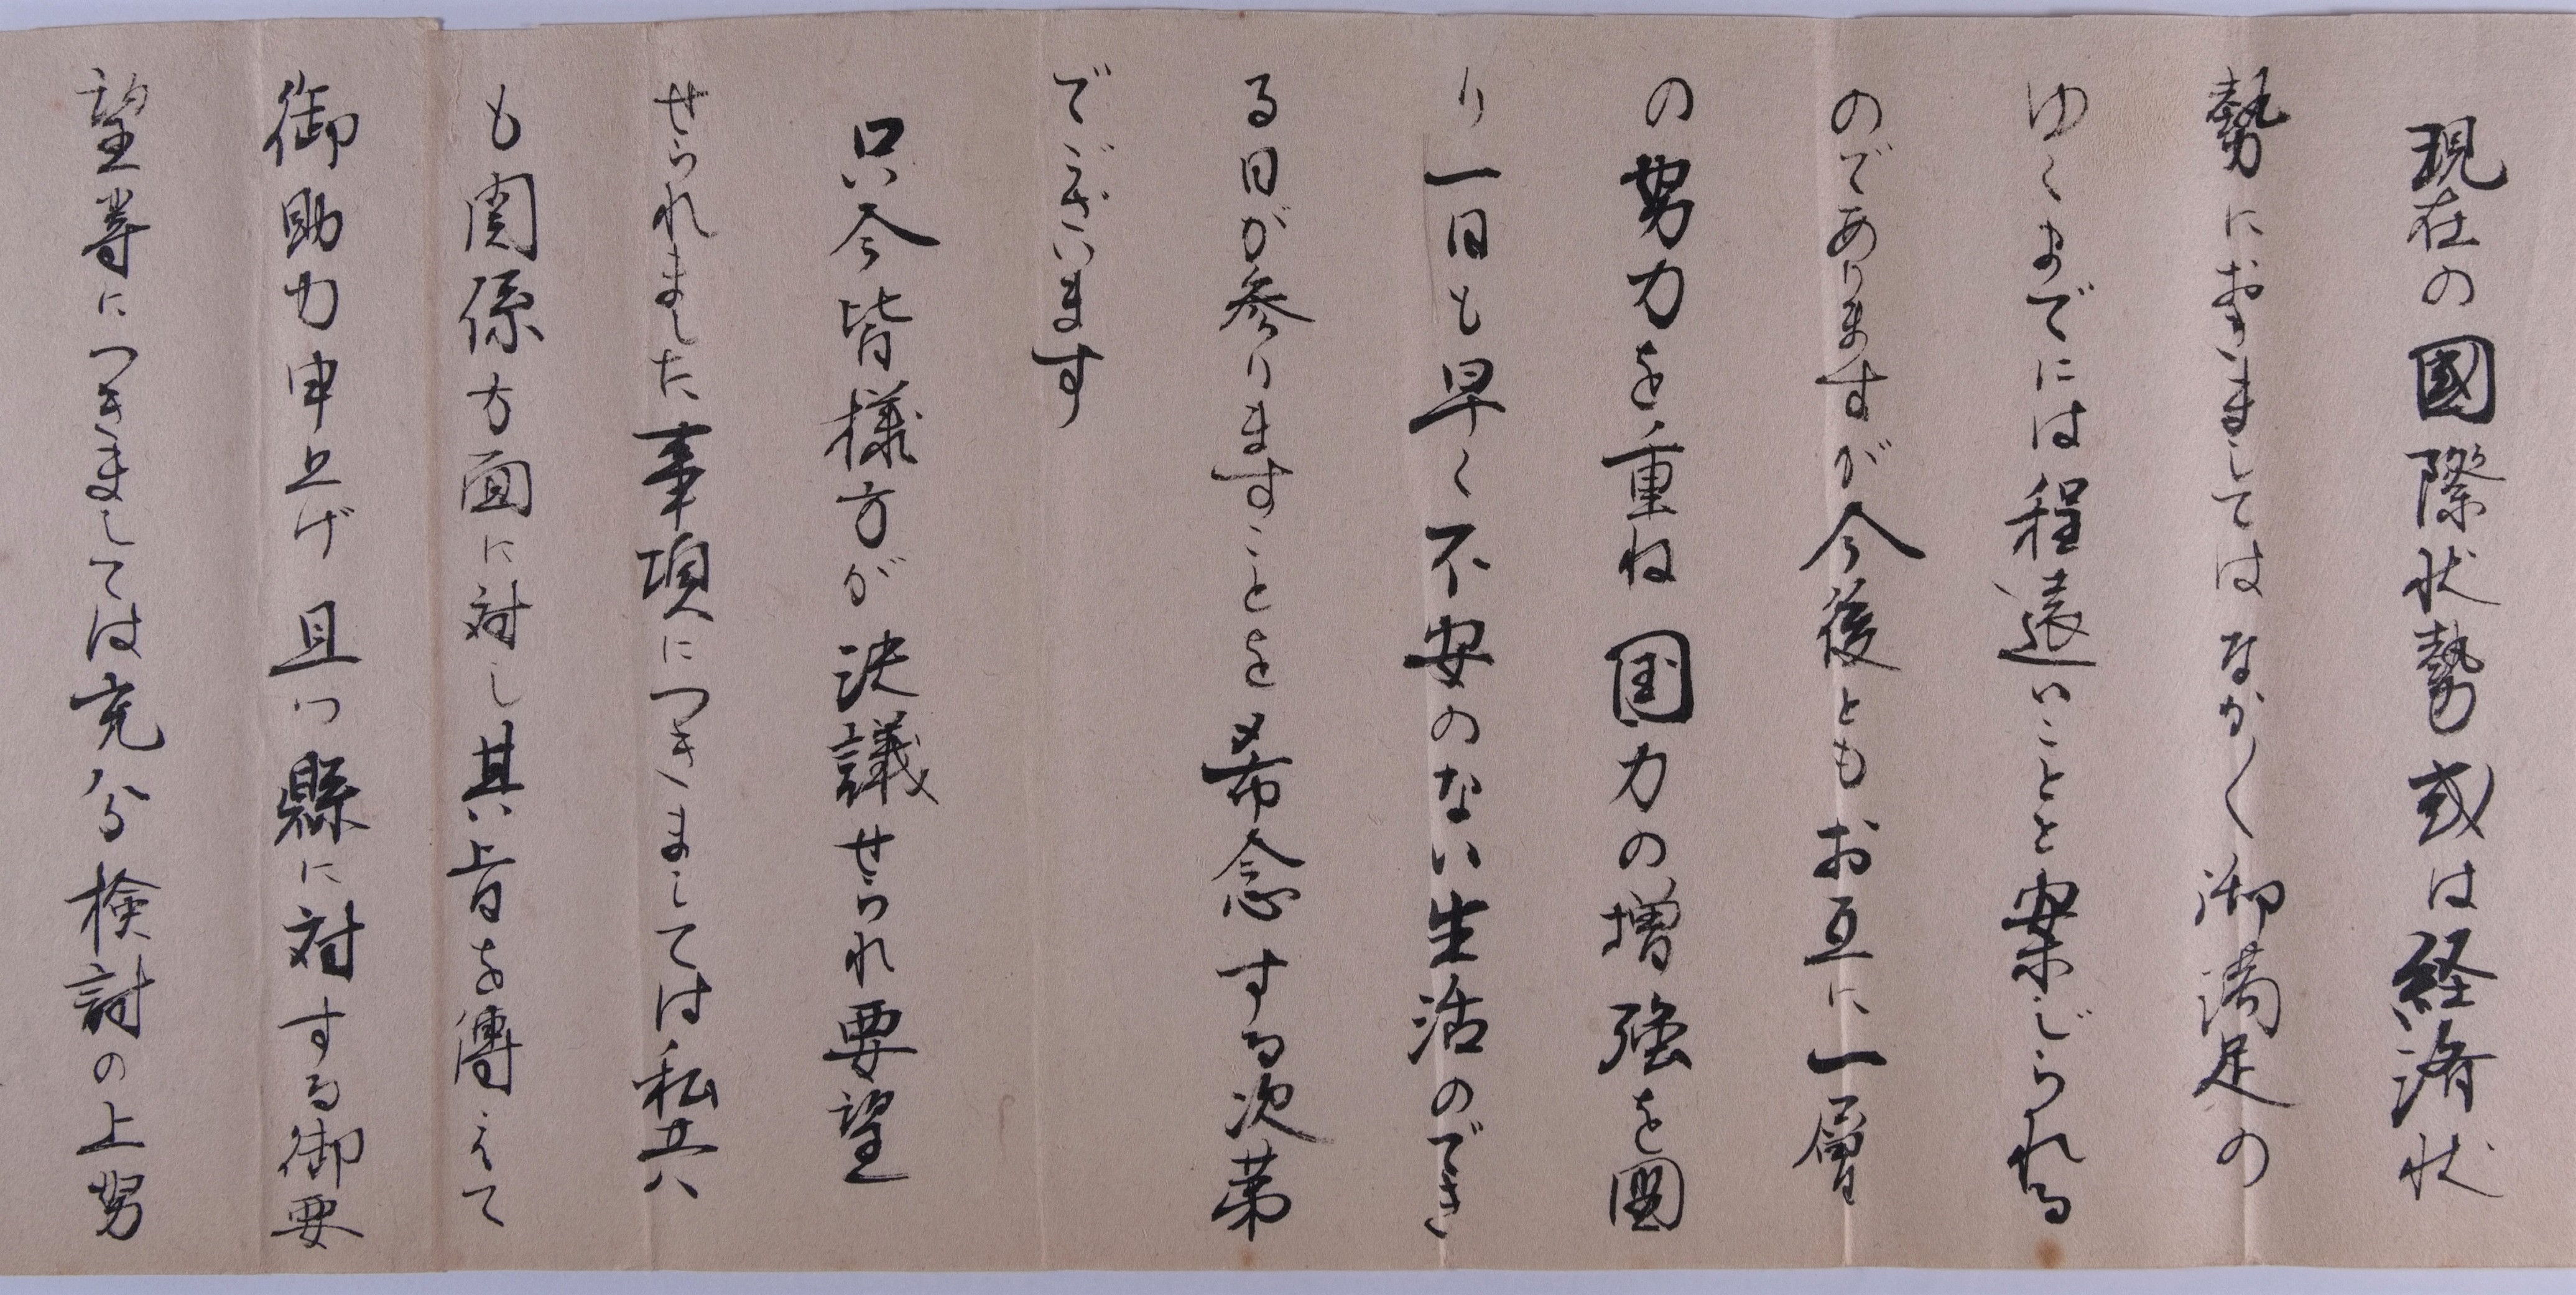 現在の國際状勢或は経済状
勢におきましてはなか〱御満足の
ゆくまでには程遠いことと案じられる
のでありますが今後ともお互に一層
の努力を重ね国力の増強を図
り一日も早く不安のない生活のでき
る日が参りますことを希念する次第
でございます
只今皆様方が決議せられ要望
せられました事項につきましては私共
も関係方面に対し其旨を傳えて
御助力申上げ且つ縣に対する御要
望等につきましては充分検討の上努